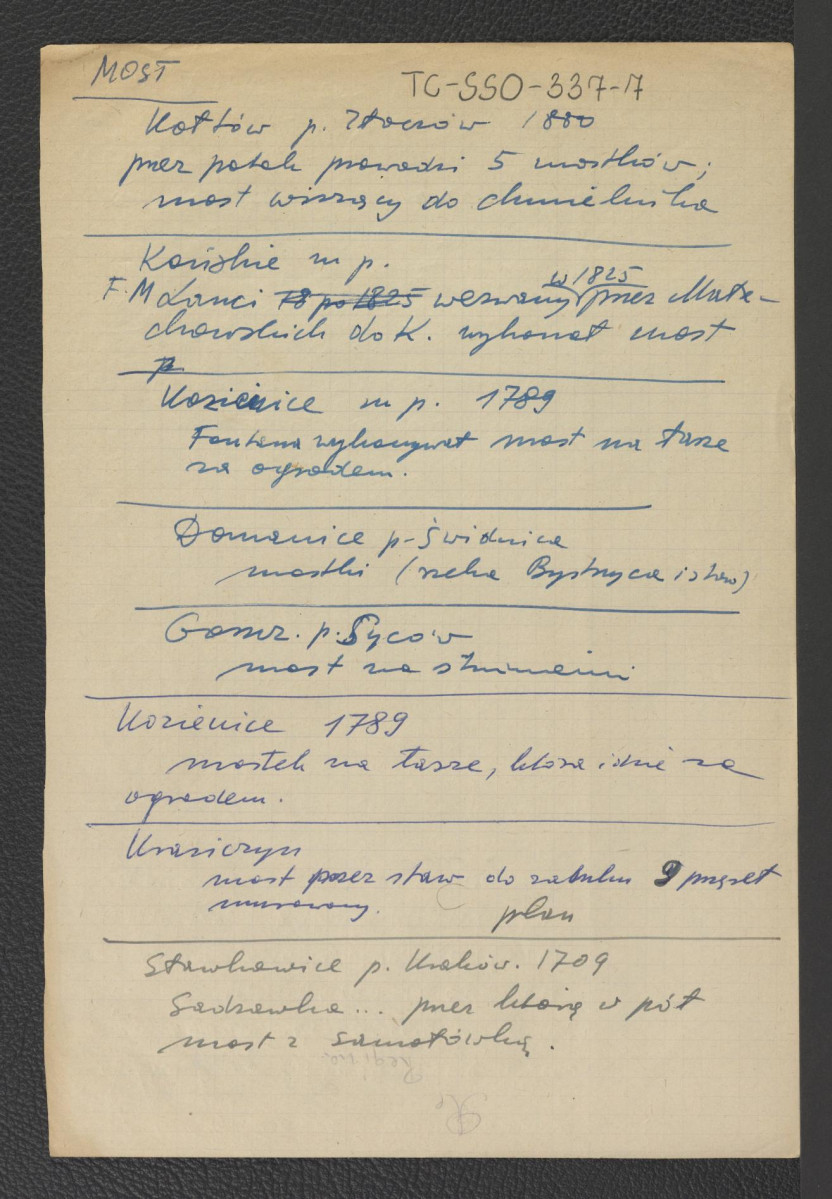 MOST
TC-SSO-337-17
Kołtów p. Złoczów 1880
przez potok prowadzi 5 mostków;
most wiszący do chmielnika
Końskie m p.
w 1825
F. M Lanci 18 po 1825 wezwany przez Mała-
chowskich do K. wykonał most
p
Kozienice m p. 1789
Fontana wykonywał most na tasze
za ogrodem.
Domanice p-Świdnica
mostki (rzeka Bystrzyca i staw)
Goszcz. p. Syców
most na strumieniu
Kozienice 1789
mostek na tasze, która idzie za
ogrodem.
Krasiczyn
most przez staw do zamku 9 przęseł
murowany. plan
Stawkowice p. Kraków. 1709
Sadzawka... przez którą w pół
most z samołówką.